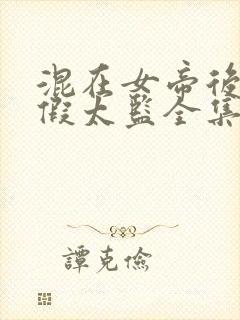 混在女帝後
假太監全集
譚克儉